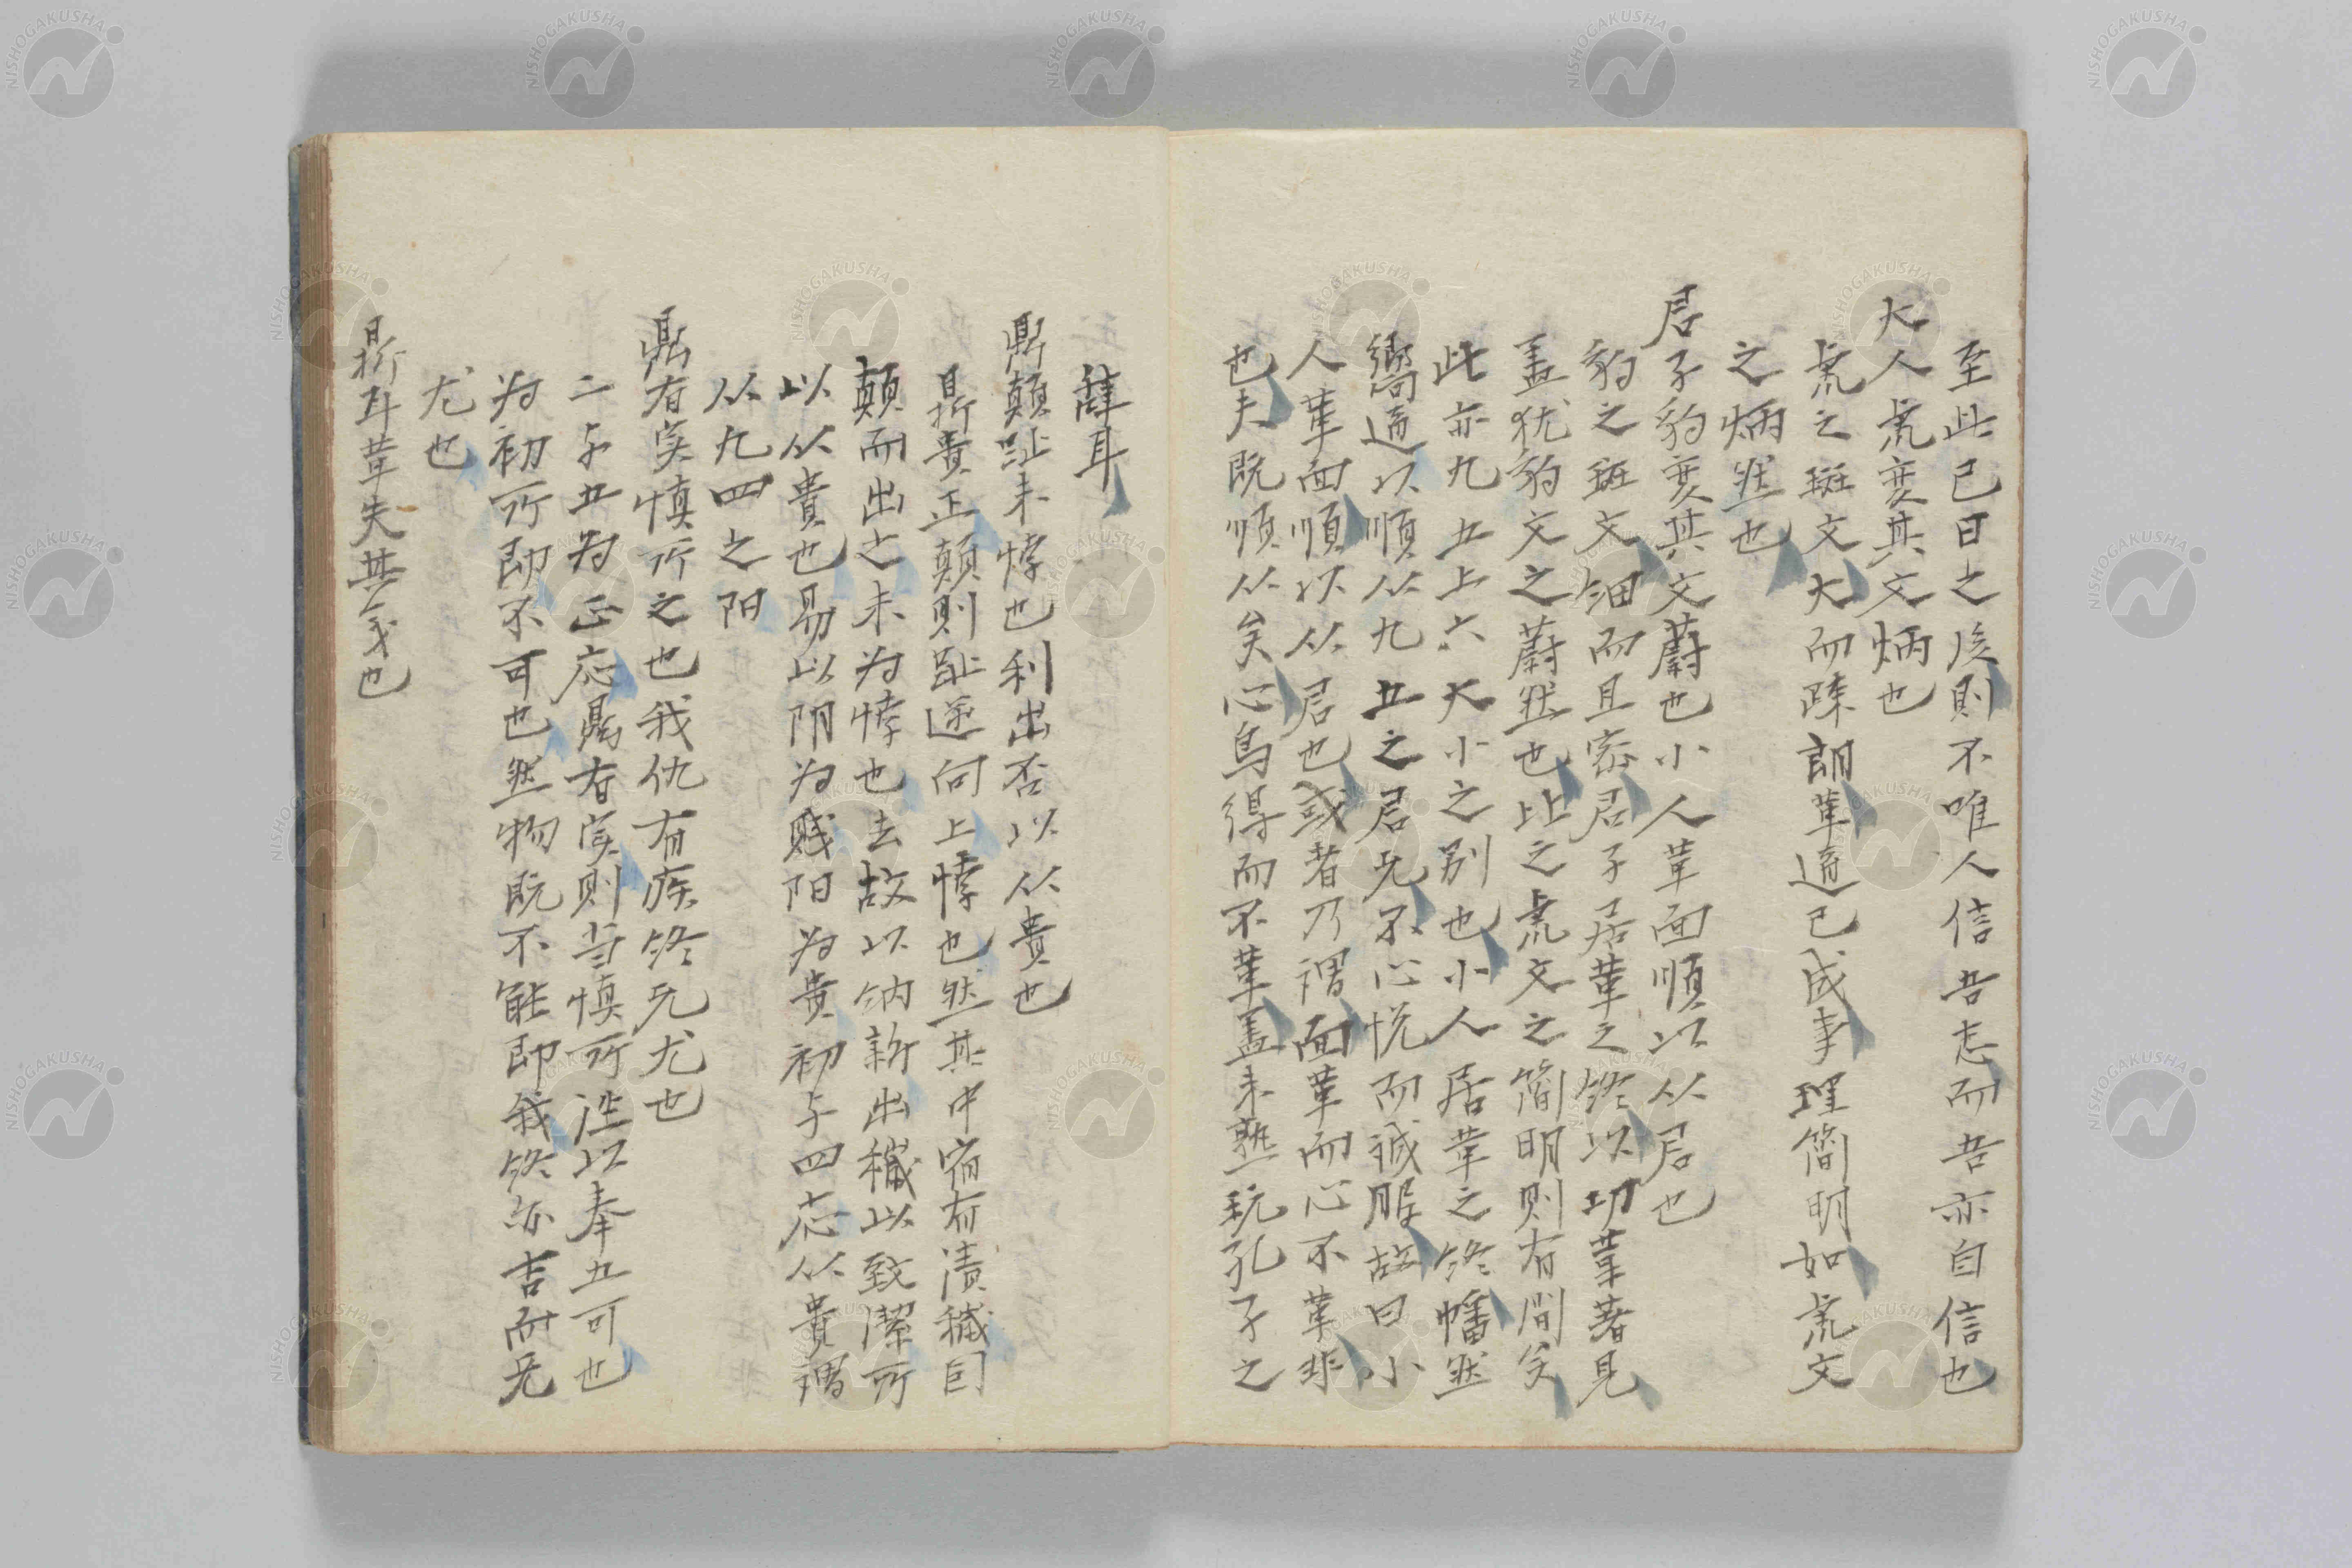 至此已日之後則不唯人信吾志而吾亦自信也
大人虎変其文炳也
虎之斑文大而踈朗革道已成事理簡明如虎文
之炳然也
君子豹変其文蔚也小人革面順以从君也
豹之斑文細而且密君子居革之終以功業著見
盖犹豹文之蔚然也比之虎文之簡明則有間矣
此亦九五上六大小之别也小人居革之終幡然
嚮道以順从九五之君无不心悦而诚服故曰小
人革面順以从君也或者乃謂面革而心不革非
也夫既順从矣心烏得而不革盖未熟玩孔子之
辞耳
鼎顛趾未悖也利出否以从貴也
鼎貴正顛則趾逆向上悖也然其中宿有渍穢因
顛而出之未为悖也去故以纳新出穢以致潔所
以从貴也易以阴为贱阳为贵初与四応从貴謂
从九四之阳
鼎有实慎所之也我仇有疾终无尤也
二与五为正応鼎有实则当慎所往以奉五可也
为初所即不可也然物既不能即我终亦吉而无
尤也
鼎耳革失其义也
NISHOGAKUSHA